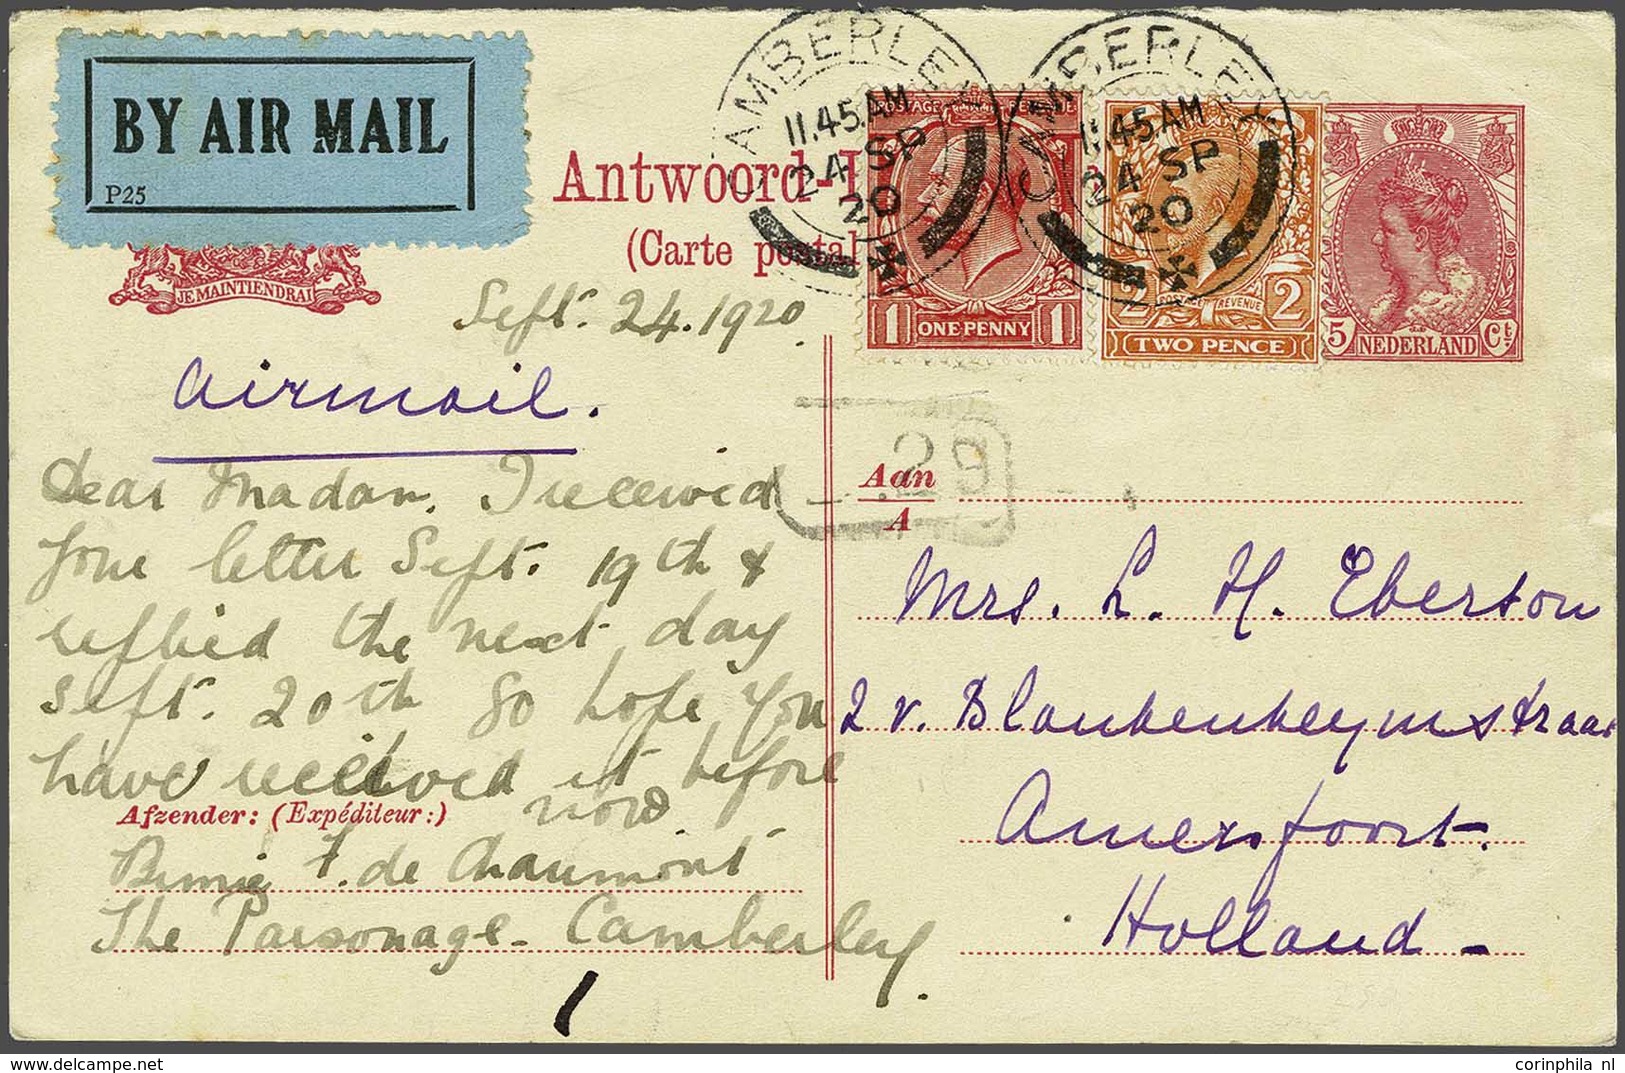 BY AIR MAIL
P25
JE MAINTIENDRAI
Antwoord-
(Carte postal
CAMBERLEY
11.45 AM
24 SP
20
CAMBERLEY
11.45 AM
24 SP
20
POSTAGE REVENUE
1 ONE PENNY 1
2 POSTAGE REVENUE 2
TWO PENCE
5 NEDERLAND Ct
Sept. 24. 1920
airmail.
Dear Madam. I received
your letter Sept. 19th &
replied the next day
Sept. 20th so hope you
have received it before
now.
Afzender: (Expéditeur:)
F. de Chaumont
The Parsonage - Camberley.
1
29
Aan
A
Mrs. L. H. Eberson
2 v. Blankenheymstraat
Amersfoort.
Holland -
Powered by TCPDF (www.tcpdf.org)
corinphila nl